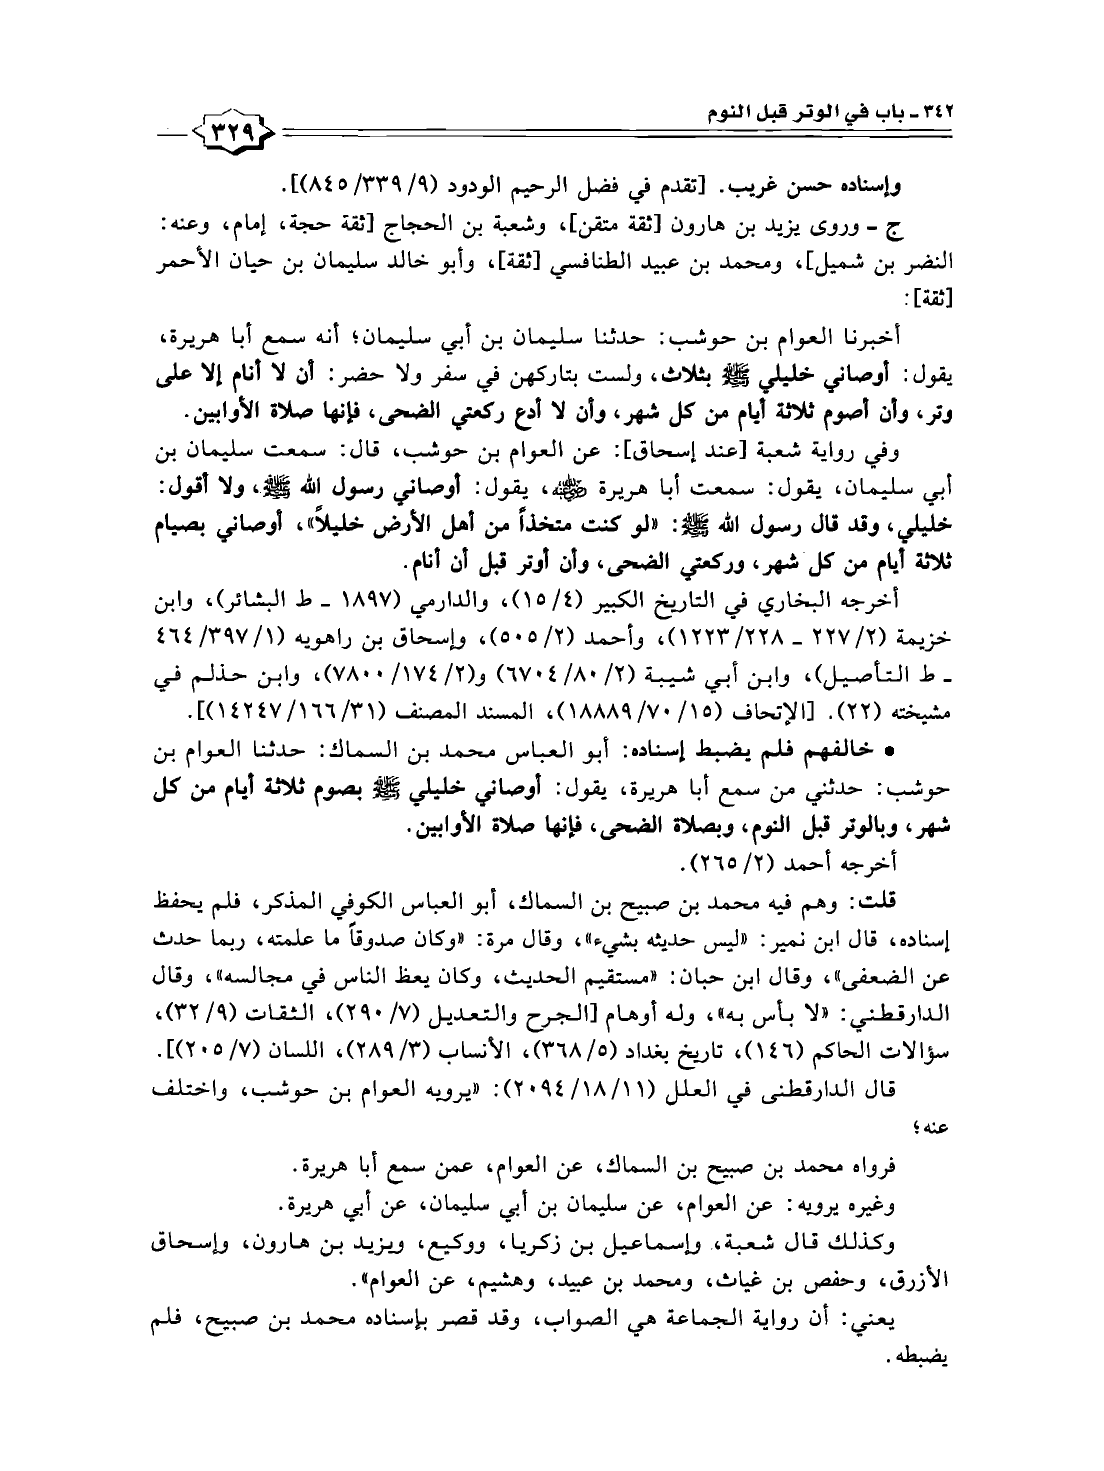 ٣٤٢ ـ باب في الوتر قبل النوم
٣٢٩
وإسناده حسن غريب. [تقدم في فضل الرحيم الودود (٩/ ٣٣٩/ ٨٤٥)].
ج ـ وروى يزيد بن هارون [ثقة متقن]، وشعبة بن الحجاج [ثقة حجة، إمام، وعنه:
النضر بن شميل]، ومحمد بن عبيد الطنافسي [ثقة]، وأبو خالد سليمان بن حيان الأحمر
[ثقة]:
أخبرنا العوام بن حوشب: حدثنا سليمان بن أبي سليمان؛ أنه سمع أبا هريرة،
يقول: أوصاني خليلي ﷺ بثلاث، ولست بتاركهن في سفر ولا حضر: أن لا أنام إلا على
وتر، وأن أصوم ثلاثة أيام من كل شهر، وأن لا أدع ركعتي الضحى، فإنها صلاة الأوابين.
وفي رواية شعبة [عند إسحاق]: عن العوام بن حوشب، قال: سمعت سليمان بن
أبي سليمان، يقول: سمعت أبا هريرة رضي الله عنه، يقول: أوصاني رسول الله ﷺ، ولا أقول:
خليلي، وقد قال رسول الله ﷺ: «لو كنت متخذاً من أهل الأرض خليلاً»، أوصاني بصيام
ثلاثة أيام من كل شهر، وركعتي الضحى، وأن أوتر قبل أن أنام.
أخرجه البخاري في التاريخ الكبير (٤/ ١٥)، والدارمي (١٨٩٧ ـ ط البشائر)، وابن
خزيمة (٢/ ٢٢٧ ـ ٢٢٨/ ١٢٢٣)، وأحمد (٢/ ٥٠٥)، وإسحاق بن راهويه (١/ ٣٩٧/ ٤٦٤
ـ ط التأصيل)، وابن أبي شيبة (٢/ ٨٠/ ٦٧٠٤) و(٢/ ١٧٤/ ٧٨٠٠)، وابن حذلم في
مشيخته (٢٢). [الإتحاف (١٥/ ٧٠/ ١٨٨٨٩)، المسند المصنف (٣١/ ١٦٦/ ١٤٢٤٧)].
• خالفهم فلم يضبط إسناده: أبو العباس محمد بن السماك: حدثنا العوام بن
حوشب: حدثني من سمع أبا هريرة، يقول: أوصاني خليلي ﷺ بصوم ثلاثة أيام من كل
شهر، وبالوتر قبل النوم، وبصلاة الضحى، فإنها صلاة الأوابين.
أخرجه أحمد (٢/ ٢٦٥).
قلت: وهم فيه محمد بن صبيح بن السماك، أبو العباس الكوفي المذكر، فلم يحفظ
إسناده، قال ابن نمير: «ليس حديثه بشيء»، وقال مرة: «وكان صدوقاً ما علمته، ربما حدث
عن الضعفى»، وقال ابن حبان: «مستقيم الحديث، وكان يعظ الناس في مجالسه»، وقال
الدارقطني: «لا بأس به»، وله أوهام [الجرح والتعديل (٧/ ٢٩٠)، الثقات (٩/ ٣٢)،
سؤالات الحاكم (١٤٦)، تاريخ بغداد (٥/ ٣٦٨)، الأنساب (٣/ ٢٨٩)، اللسان (٧/ ٢٠٥)].
قال الدارقطني في العلل (١١/ ١٨/ ٢٠٩٤): «يرويه العوام بن حوشب، واختلف
عنه؛
فرواه محمد بن صبيح بن السماك، عن العوام، عمن سمع أبا هريرة.
وغيره يرويه: عن العوام، عن سليمان بن أبي سليمان، عن أبي هريرة.
وكذلك قال شعبة، وإسماعيل بن زكريا، ووكيع، ويزيد بن هارون، وإسحاق
الأزرق، وحفص بن غياث، ومحمد بن عبيد، وهشيم، عن العوام».
يعني: أن رواية الجماعة هي الصواب، وقد قصر بإسناده محمد بن صبيح، فلم
يضبطه.